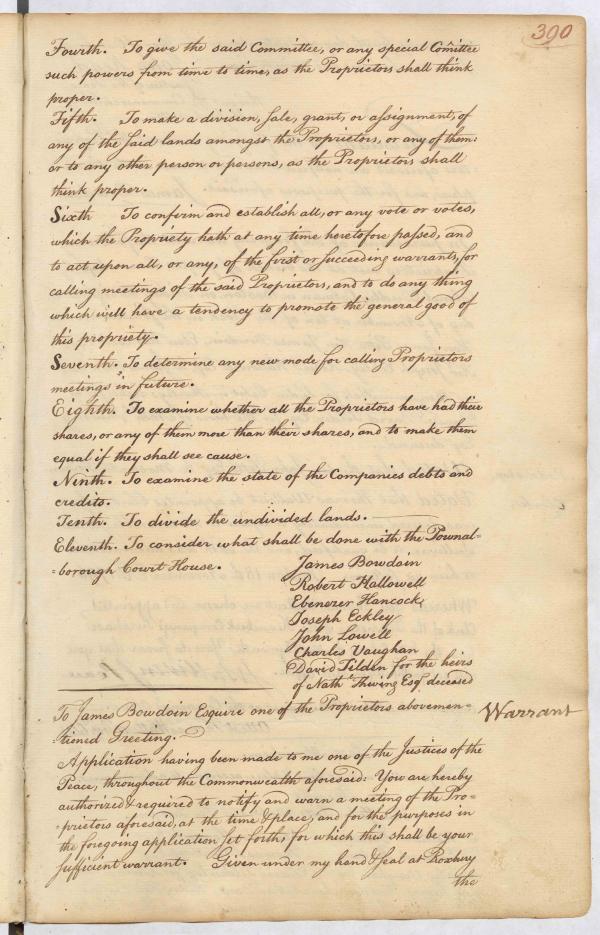 390
Fourth. To give the said Committee, or any special Com̃ittee
such powers from time to time, as the Proprietors shall think
proper.
Fifth. To make a division, sale, grant, or assignment, of
any of the said lands amongst the Proprietors, or any of them:
or to any other person or persons, as the Proprietors shall
think proper.
Sixth To confirm and establish all, or any vote or votes,
which the Propriety hath at any time heretofore passed, and
to act upon all, or any, of the first or succeeding warrants, for
calling meetings of the said Proprietors, and to do any thing
which will have a tendency to promote the general good of
this propriety.
Seventh. To determine any new mode for calling Proprietors
meetings in future.
Eighth. To examine whether all the Proprietors have had their
shares, or any of them more than their shares, and to make them
equal if they shall see cause.
Ninth. To examine the state of the Companies debts and
credits.
Tenth. To divide the undivided lands.
Eleventh. To consider what shall be done with the Pownal=
=borough Court House.
James Bowdoin
Robert Hallowell
Ebenezer Hancock
Joseph Eckley
John Lowell
Charles Vaughan
David Tilden for the heirs
of Nath Thwing Esqr deceased
To James Bowdoin Esquire one of the Proprietors abovemen=
=tioned Greeting.
Warrant
Application having been made to me one of the Justices of the
Peace, throughout the Commonwealth aforesaid: You are hereby
authorized & required to notify and warn a meeting of the Pro=
=prietors aforesaid, at the time & place, and for the purposes in
the foregoing application set forth, for which this shall be your
sufficient warrant. Given under my hand & seal at Roxbury
the